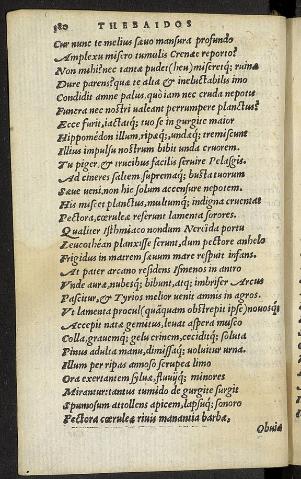 380 THEBAIDOS
Cur nunc te melius sæuo mansura profundo
Amplexu misero tumulis Crenæe reporto?
Non mihi? nec tanta pudet (heu) miseretq; ruinæ
Dure parens? quæ te alia & ineluctabilis imo
Condidit amne palus, quò iam nec cruda nepotis
Funera nec nostri ualeant perrumpere planctus?
Ecce furit, iactatq; tuo se in gurgite maior
Hippomedon illum, ripæq; undæq; tremiscunt
Illius impulsu nostrum bibit unda cruorem.
Tu piger, & trucibus facilis seruire Pelasgis.
Ad cineres saltem supremaq; busta tuorum
Sæue ueni, non hic solum accensure nepotem.
His miscet planctus, multumq; indigna cruentat
Pectora, cœruleæ referunt lamenta sorores.
Qualiter Isthmiaco nondum Nereida portu
Leucothëan planxisse ferunt, dum pectore anhelo
Frigidus in matrem sæuum mare respuit infans.
At pater arcano residens Ismenos in antro
Vnde auræ, nubesq; bibunt, atq; imbrifer Arcus
Pascitur, & Tyrios melior uenit annus in agros.
Vt lamenta procul (quāquam obstrepit ipse) nouosq;
Accepit natæ gemitus, leuat aspera musco
Colla, grauemq; gelu crinem, ceciditq; soluta
Pinus adulta manu, dimissaq; uoluitur urna.
Illum per ripas annoso scrupea limo
Ora exertantem syluæ, fluuijq; minores
Mirantur: tantus tumido de gurgite surgit
Spumosum attollens apicem, lapsuq; sonoro
Pectora cœruleæ riuis manantia barbæ,
Obuia